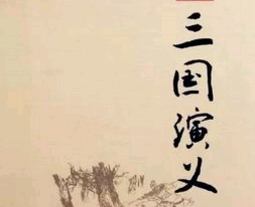 三国演义